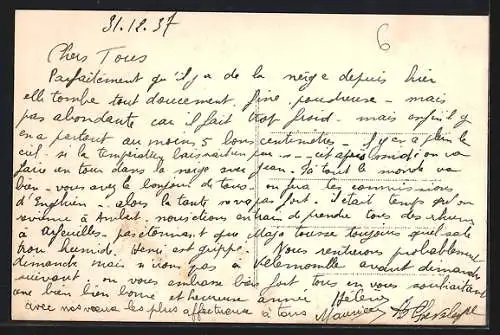 31.12.37
6
Chers Tous
Parfaitement qu'il y a de la neige depuis hier
elle tombe tout doucement, fine, poudreuse - mais
pas abondante car il fait trop froid - mais enfin il y
en a partout au moins 5 bons centimètres - il y en a plein le
ciel. si la température - cet après midi on va
faire un tour dans la neige avec Jean. Ici tout le monde va
bien - vous avez le bonjour de tous - on fera les commissions
d'Enghien - alors la tante va pas fort. il était temps qu'on
revienne à Ambert. nous étions en train de prendre tous des rhumes
à Arfeuilles - pas étonnant que Majo tousse toujours quel sale
trou humide. Henri est grippé. Nous rentrerons probablement
dimanche mais n'irons pas à avant dimanche
suivant. on vous embrasse bien fort tous en vous souhaitant
une bien bien bonne et heureuse année Hélène
avec nos vœux les plus affectueux à tous Maurice